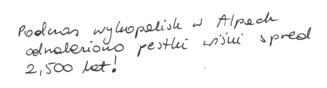 Podczas wykopalisk w Alpach
odnaleziono pestki wiśni sprzed
2,500 lat!